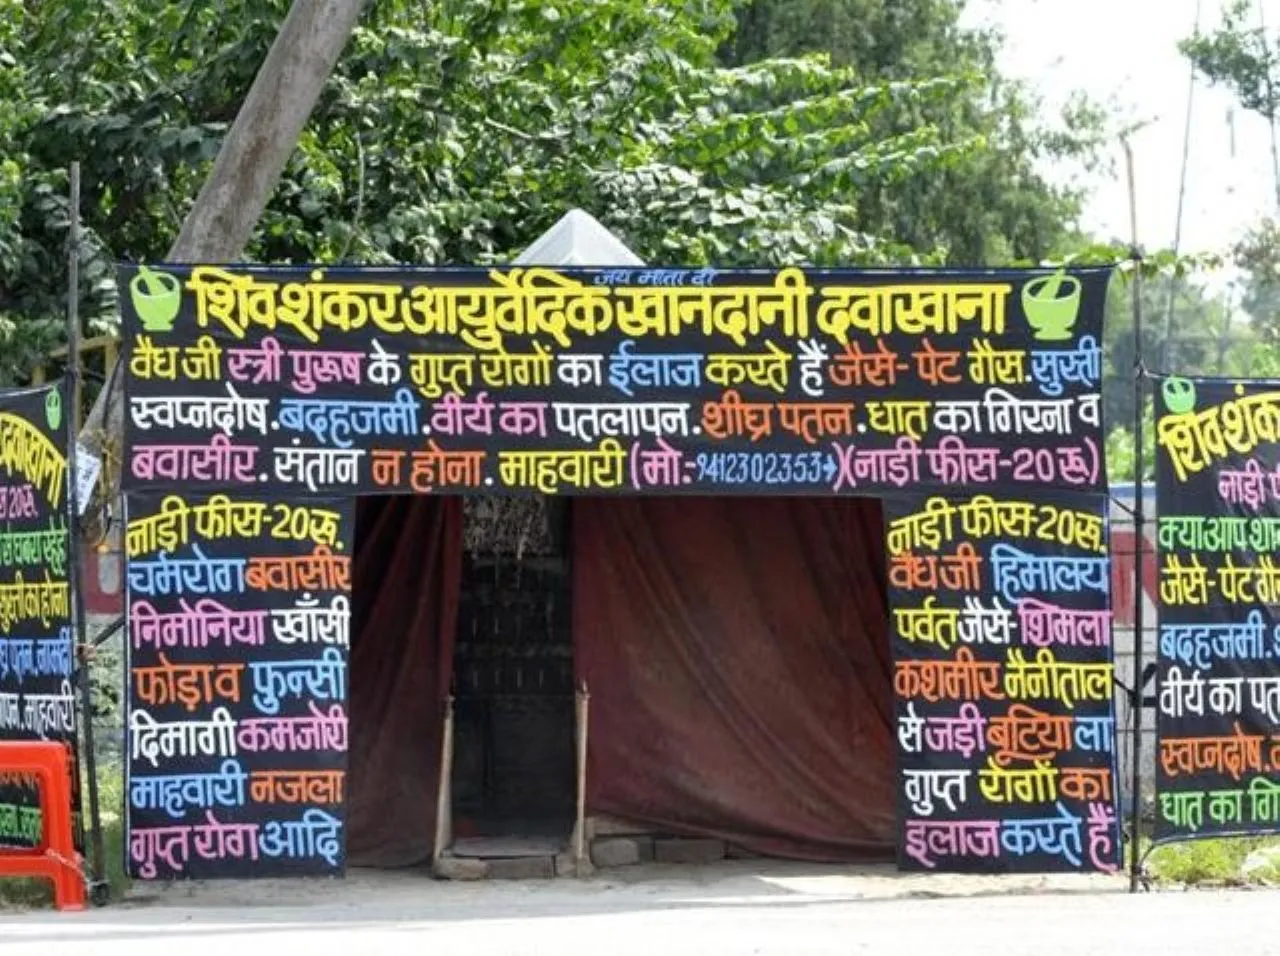 जय माता दी
शिव शंकर आयुर्वेदिक खानदानी दवाखाना
वैध जी स्त्री पुरूष के गुप्त रोगों का ईलाज करते हैं जैसे- पेट गैस. सुस्ती
स्वप्नदोष. बदहजमी. वीर्य का पतलापन. शीघ्र पतन. धात का गिरना व
बवासीर. संतान न होना. माहवारी (मो.-9412302353→)(नाड़ी फीस-20 रू)
नाड़ी फीस-20रू.
चर्मरोग बवासीर
निमोनिया खाँसी
फोड़ा व फुन्सी
दिमागी कमजोरी
माहवारी नजला
गुप्त रोग आदि
नाड़ी फीस-20रू.
वैध जी हिमालय
पर्वत जैसे- शिमला
कशमीर नैनीताल
से जड़ी बूटिया ला
गुप्त रोगों का
इलाज करते हैं
20रू.
का होना
माहवारी
शिव शंक
नाड़ी
क्या आप
जैसे- पेट गै
बदहजमी.
वीर्य का पत
स्वप्नदोष.
धात का गि